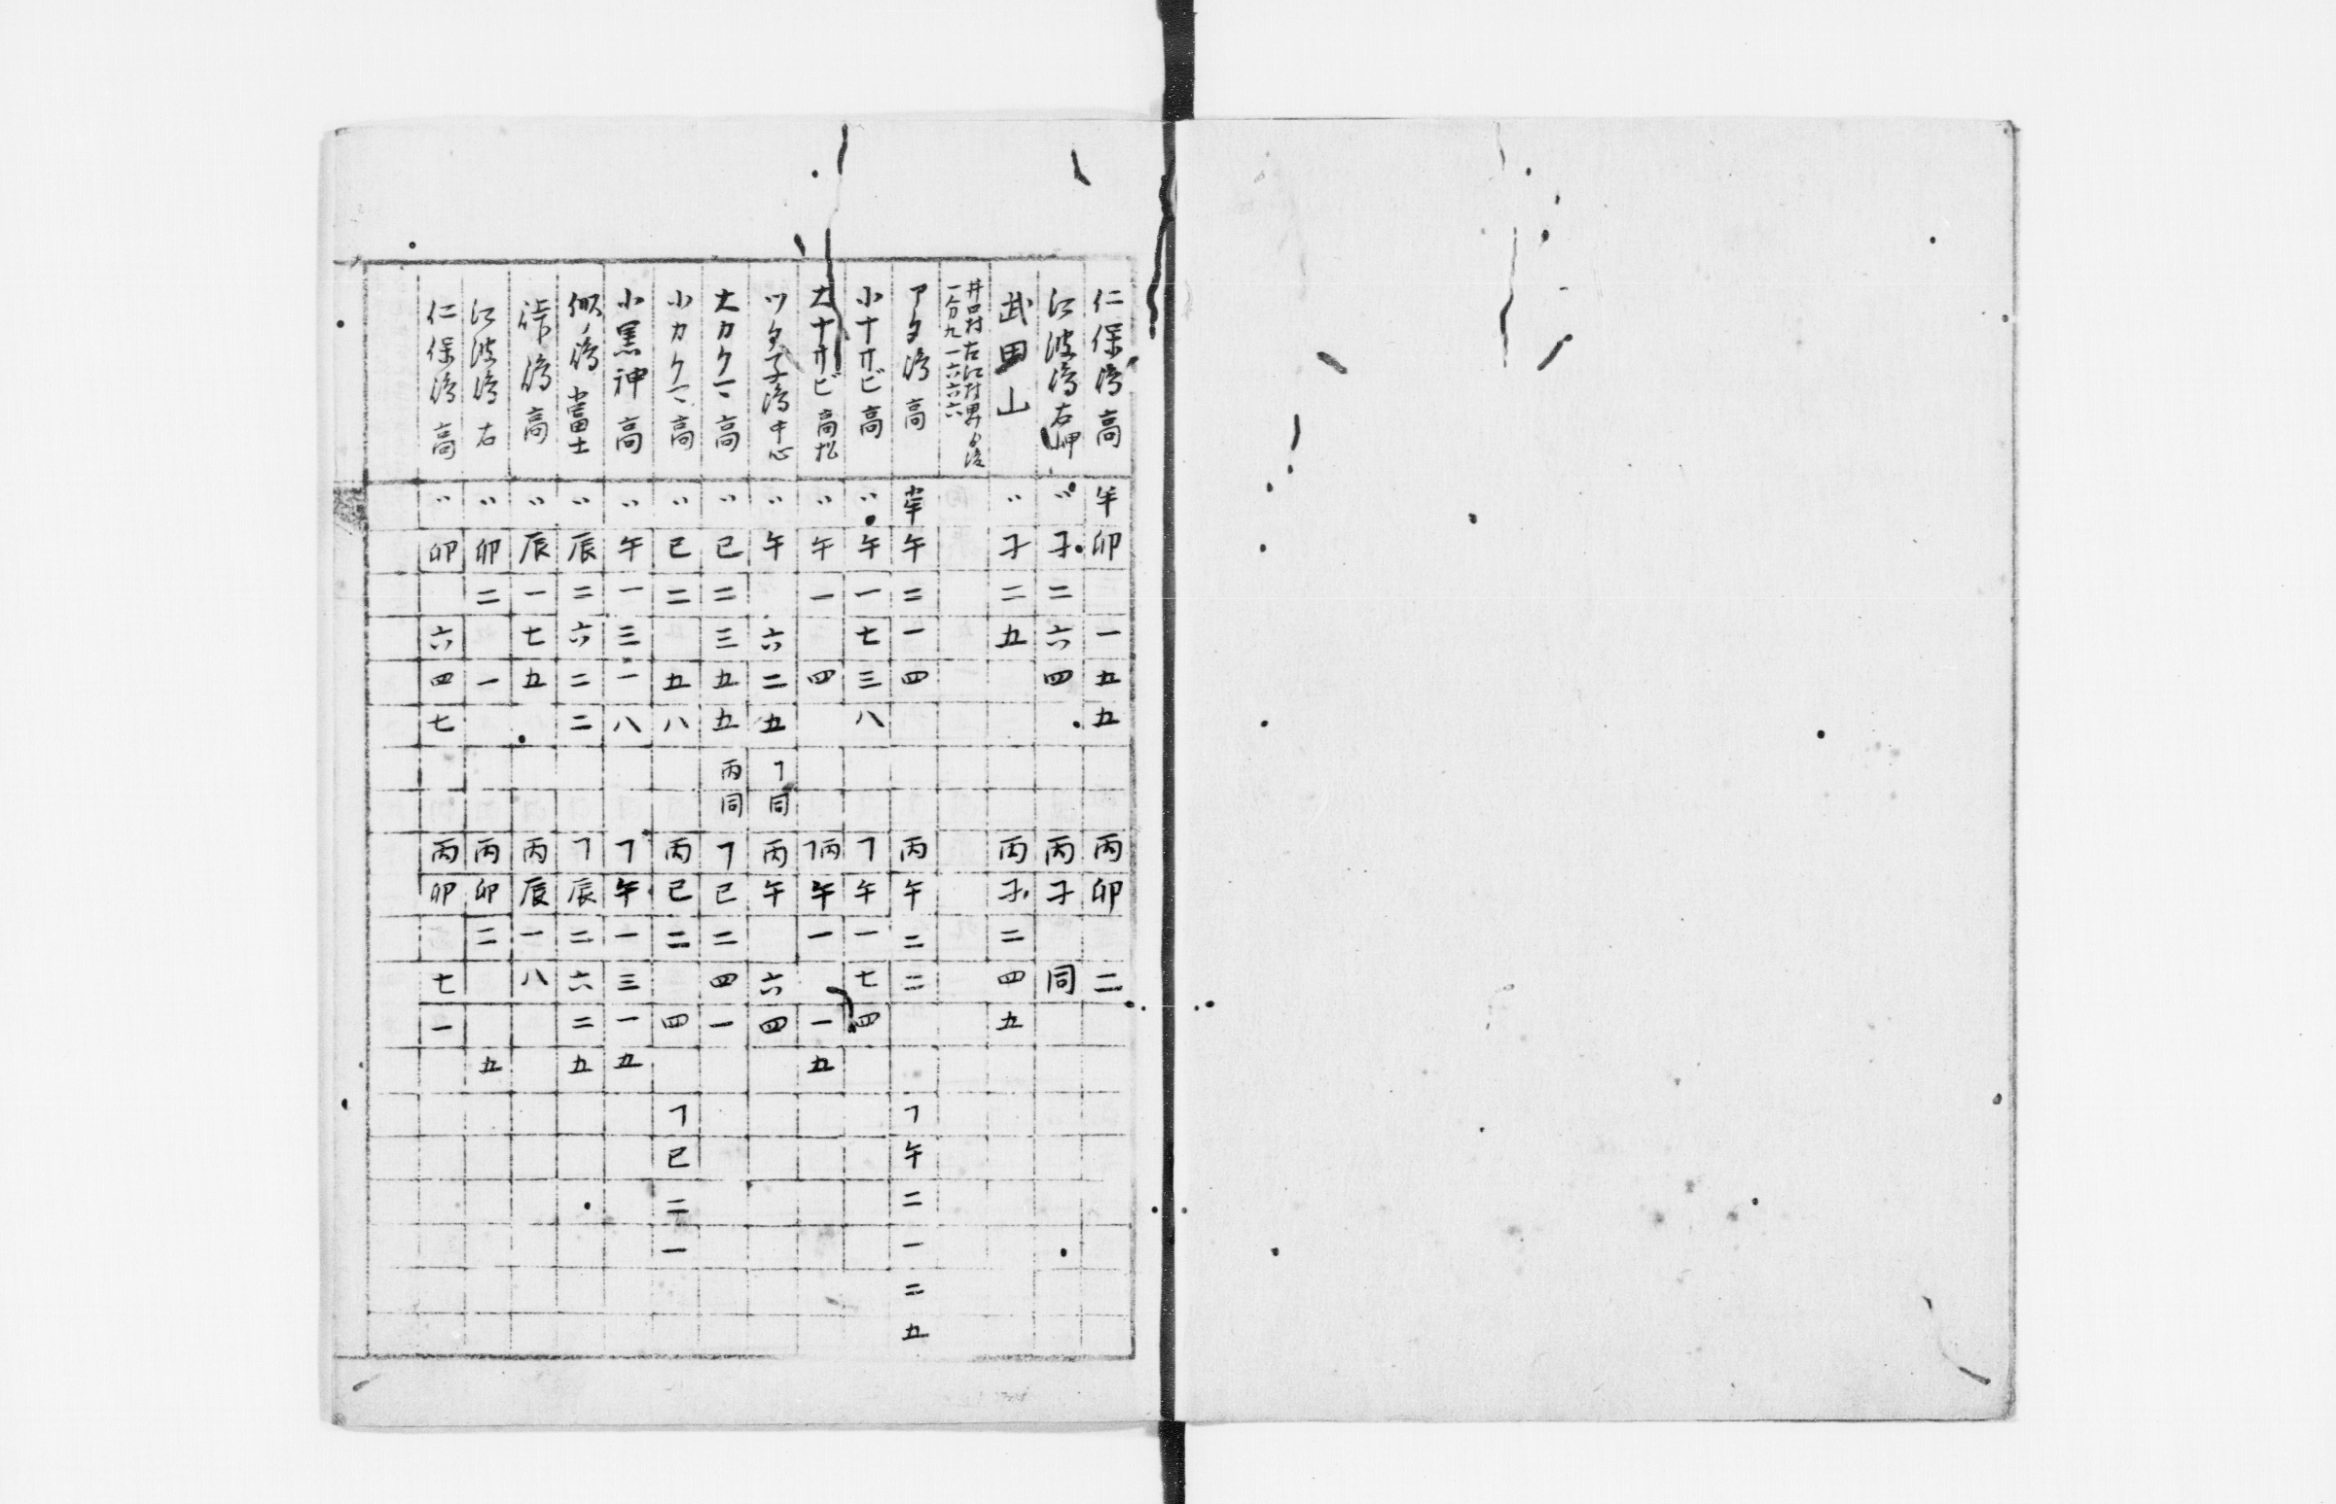 仁保嶋高 半 卯 一五五 丙卯 二
江波嶋右岬 〃 子二六四 丙子 同
武田山 〃 子二五 丙子二四五
井口村古江村界ゟ後
一分九一六六六
アタ嶋高 半 午二一四 丙午二二 丁午二一二五
小ナサビ高 〃 午一七三八 丁午一七四
大ナサビ高松 〃 午一 四 丁丙午一 一五
ツタ子嶋中心 〃 午 六二五 丁同 丙午 六四
大カクマ高 〃 巳二三五五 丙同 丁巳二四一
小カクマ高 〃 巳二 五八 丙巳二 四 丁巳二一
小黒神高 〃 午一三一八 丁午一三一五
似ノ嶋富士 〃 辰二六二二 丁辰二六二五
峠嶋高 〃 辰一七五 丙辰一八
江波嶋右 〃 卯二 一 丙卯二 五
仁保嶋高 〃 卯 六四七 丙卯 七一